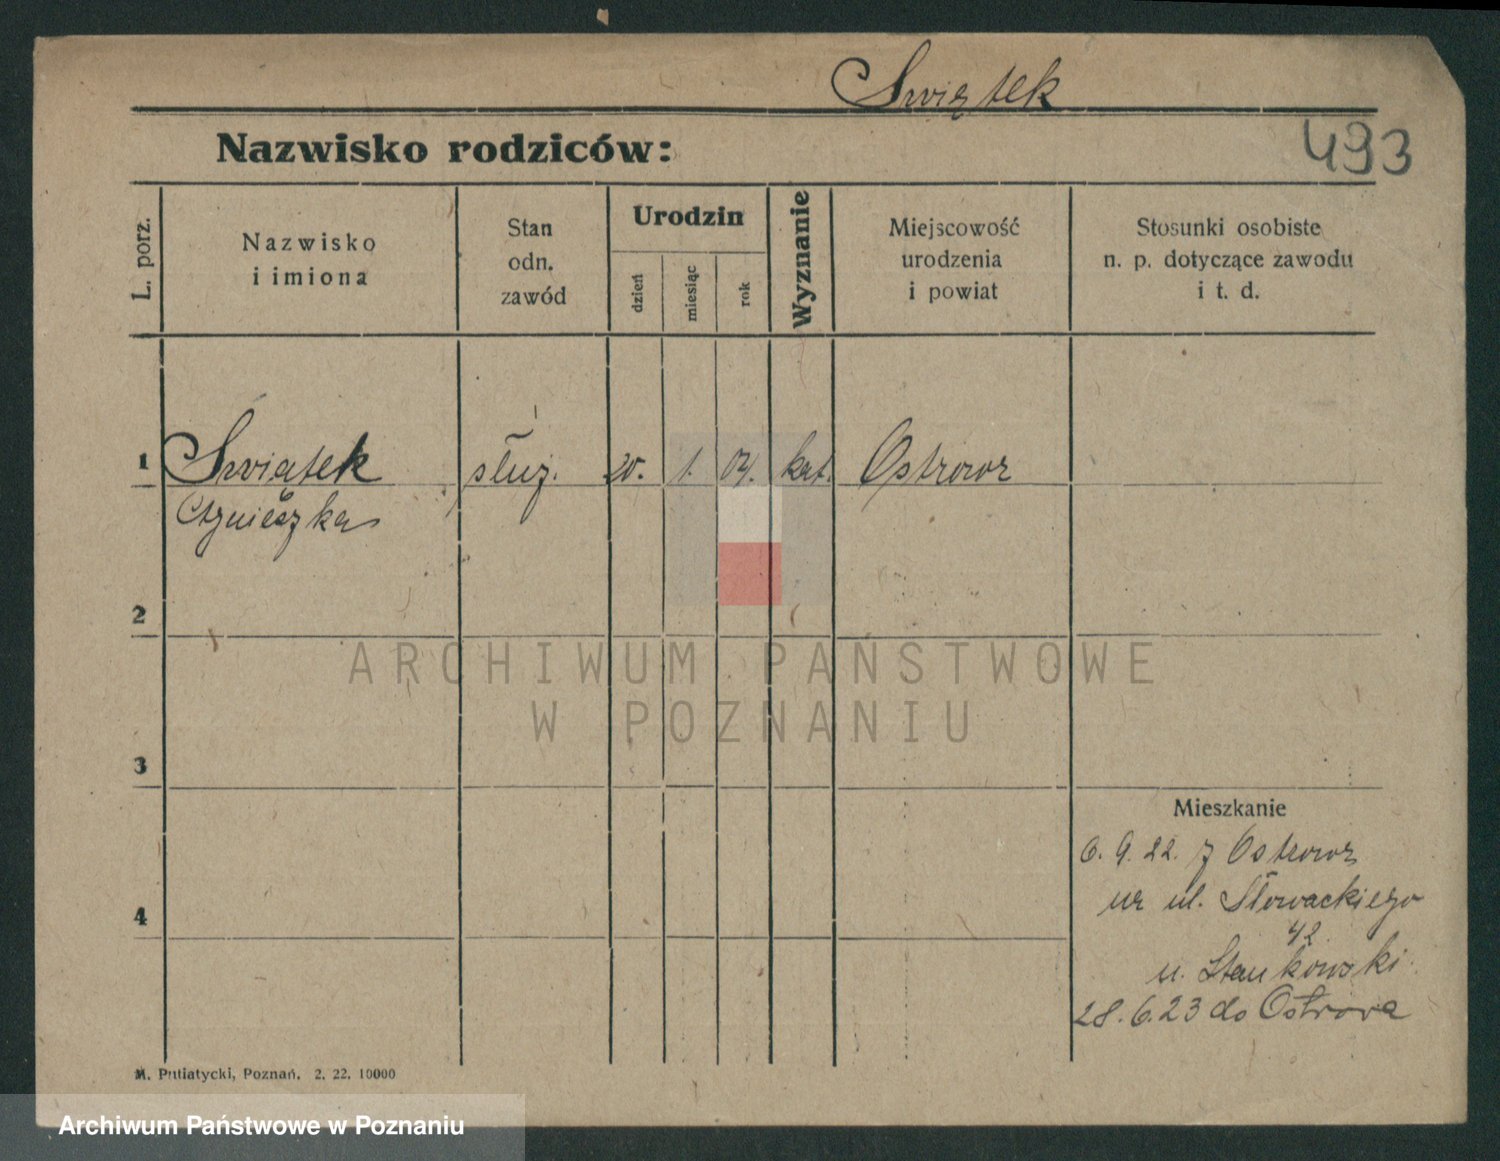 Swiątek
493
Nazwisko rodziców:
L. porz.
Nazwisko
i imiona
Stan
odn.
zawód
Urodzin
dzień
miesiąc
rok
Wyznanie
Miejscowość
urodzenia
i powiat
Stosunki osobiste
n. p. dotyczące zawodu
i t. d.
1
Swiątek służ. 20. 1. 04. kat. Ostrowa
Agnieszka
2
ARCHIWUM PAŃSTWOWE
W POZNANIU
3
Mieszkanie
6. 9. 22. z Ostrowa
na ul. Słowackiego
42
4
u. Stankowski
28.6.23 do Ostrowa
M. Putiatycki, Poznań. 2. 22. 10000
Archiwum Państwowe w Poznaniu